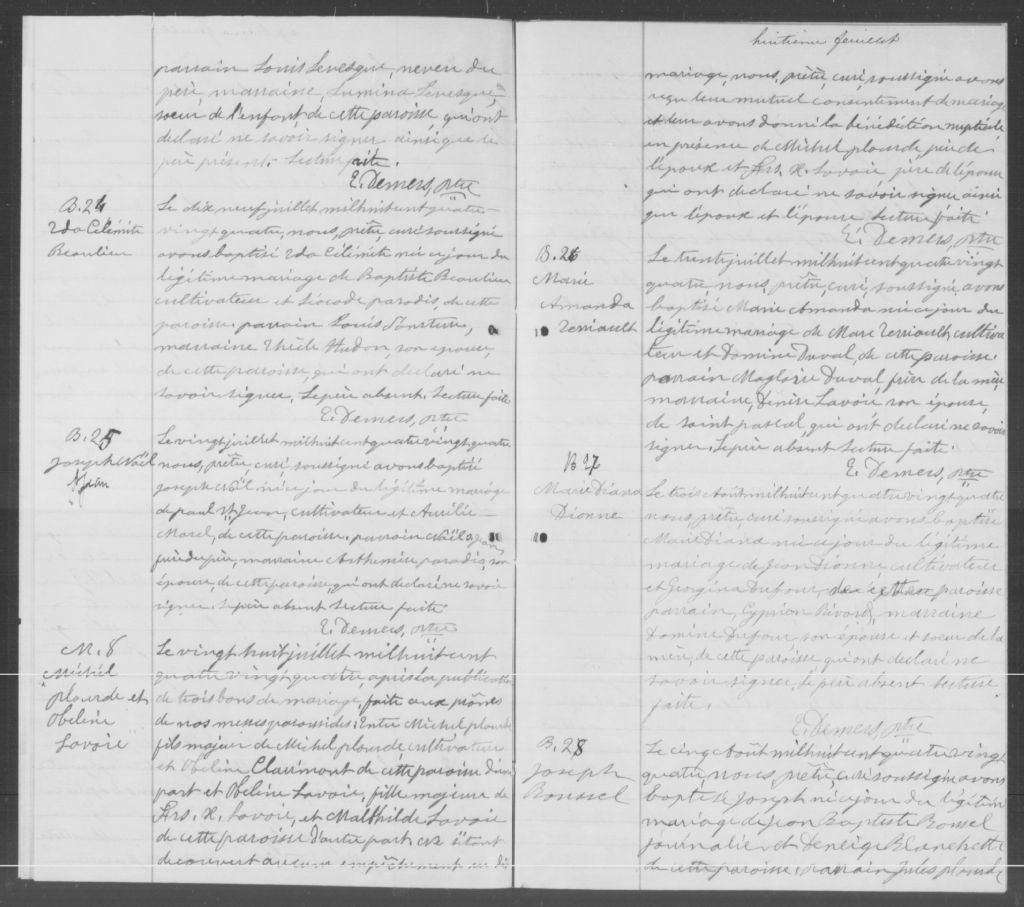 parrain Louis Levesque, neveu du
père, marraine, Lumina Levesque,
soeur de l'enfant de cette paroisse qui ont
declaré ne savoir signer ainsi que le
père présent. Lecture faite.
E. Demers, ptre
B. 24
Célémite
Beaulieu
Le dix neuf juillet mil huit cent quatre-
vingt quatre, nous, prêtre curé soussigné
avons baptisé Célémite née ce jour du
légitime mariage de Baptiste Beaulieu
cultivateur et Léocade paradis de cette
paroisse. parrain Louis
marraine Hudon, son épouse,
de cette paroisse, qui ont declaré ne
savoir signer. Le père absent. Lecture faite
E. Demers, ptre
B. 25
Joseph Noël
Le vingt juillet mil huit cent quatre vingt quatre
nous, prêtre, curé, soussigné avons baptisé
Joseph Noël né ce jour du légitime mariage
de paul St Jean, cultivateur et Aurélie
Morel, de cette paroisse. parrain Noël
frère du père, marraine Arthemise paradis, son
épouse, de cette paroisse, qui ont declaré ne savoir
signer. Le père absent Lecture faite
E. Demers, ptre
M. 8
Michel
plourde et
Obeline
Lavoie
Le vingt huit juillet mil huit cent
quatre vingt quatre, après la publication
de trois bans de mariage, faite aux prônes
de nos messes paroissiales: Entre Michel plourde
fils majeur de Michel plourde cultivateur
et Obeline Clairmont de cette paroisse d'une
part et Obeline Lavoie, fille majeure de
Frs. X. Lavoie, et Mathilde Lavoie
de cette paroisse d'autre part. Ne s'étant
découvert aucun empêchement au dit
huitième feuillet
mariage, nous, prêtre, curé, soussigné avons
reçu leur mutuel consentement de mariage
et leur avons donné la bénédiction nuptiale
en présence de Michel plourde père de
l'époux et Frs. X. Lavoie père de l'épouse
qui ont declaré ne savoir signer ainsi
que l'époux et l'épouse Lecture faite
E. Demers, ptre
B. 26
Marie
Amanda
Terriault
Le trente juillet mil huit cent quatre vingt
quatre nous, prêtre, curé, soussigné avons
baptisé Marie Amanda née ce jour du
légitime mariage de Marc Terriault, cultiva-
teur et Domine Duval, de cette paroisse.
parrain Magloire Duval, frère de la mère
marraine, Denise Lavoie son épouse,
de saint pascal, qui ont declaré ne savoir
signer. Le père absent Lecture faite.
E. Demers, ptre
B 27
Marie Diana
Dionne
Le trois Août mil huit cent quatre vingt quatre
nous prêtre, curé soussigné avons baptisé
Marie Diana née ce jour du légitime
mariage de Jean Dionne cultivateur
et Georgina Dufour, de cette paroisse
parrain, Cyprien marraine
Domine Dufour son épouse et soeur de la
mère, de cette paroisse qui ont declaré ne
savoir signer, le père absent Lecture
faite.
E. Demers, ptre
B. 28
Joseph
Roussel
Le cinq Août mil huit cent quatre vingt
quatre nous, prêtre, curé soussigné avons
baptisé Joseph né ce jour du légitime
mariage de Jean Baptiste Rossel
journalier et Deneige Blanchette
de cette paroisse, parrain Jules plourde